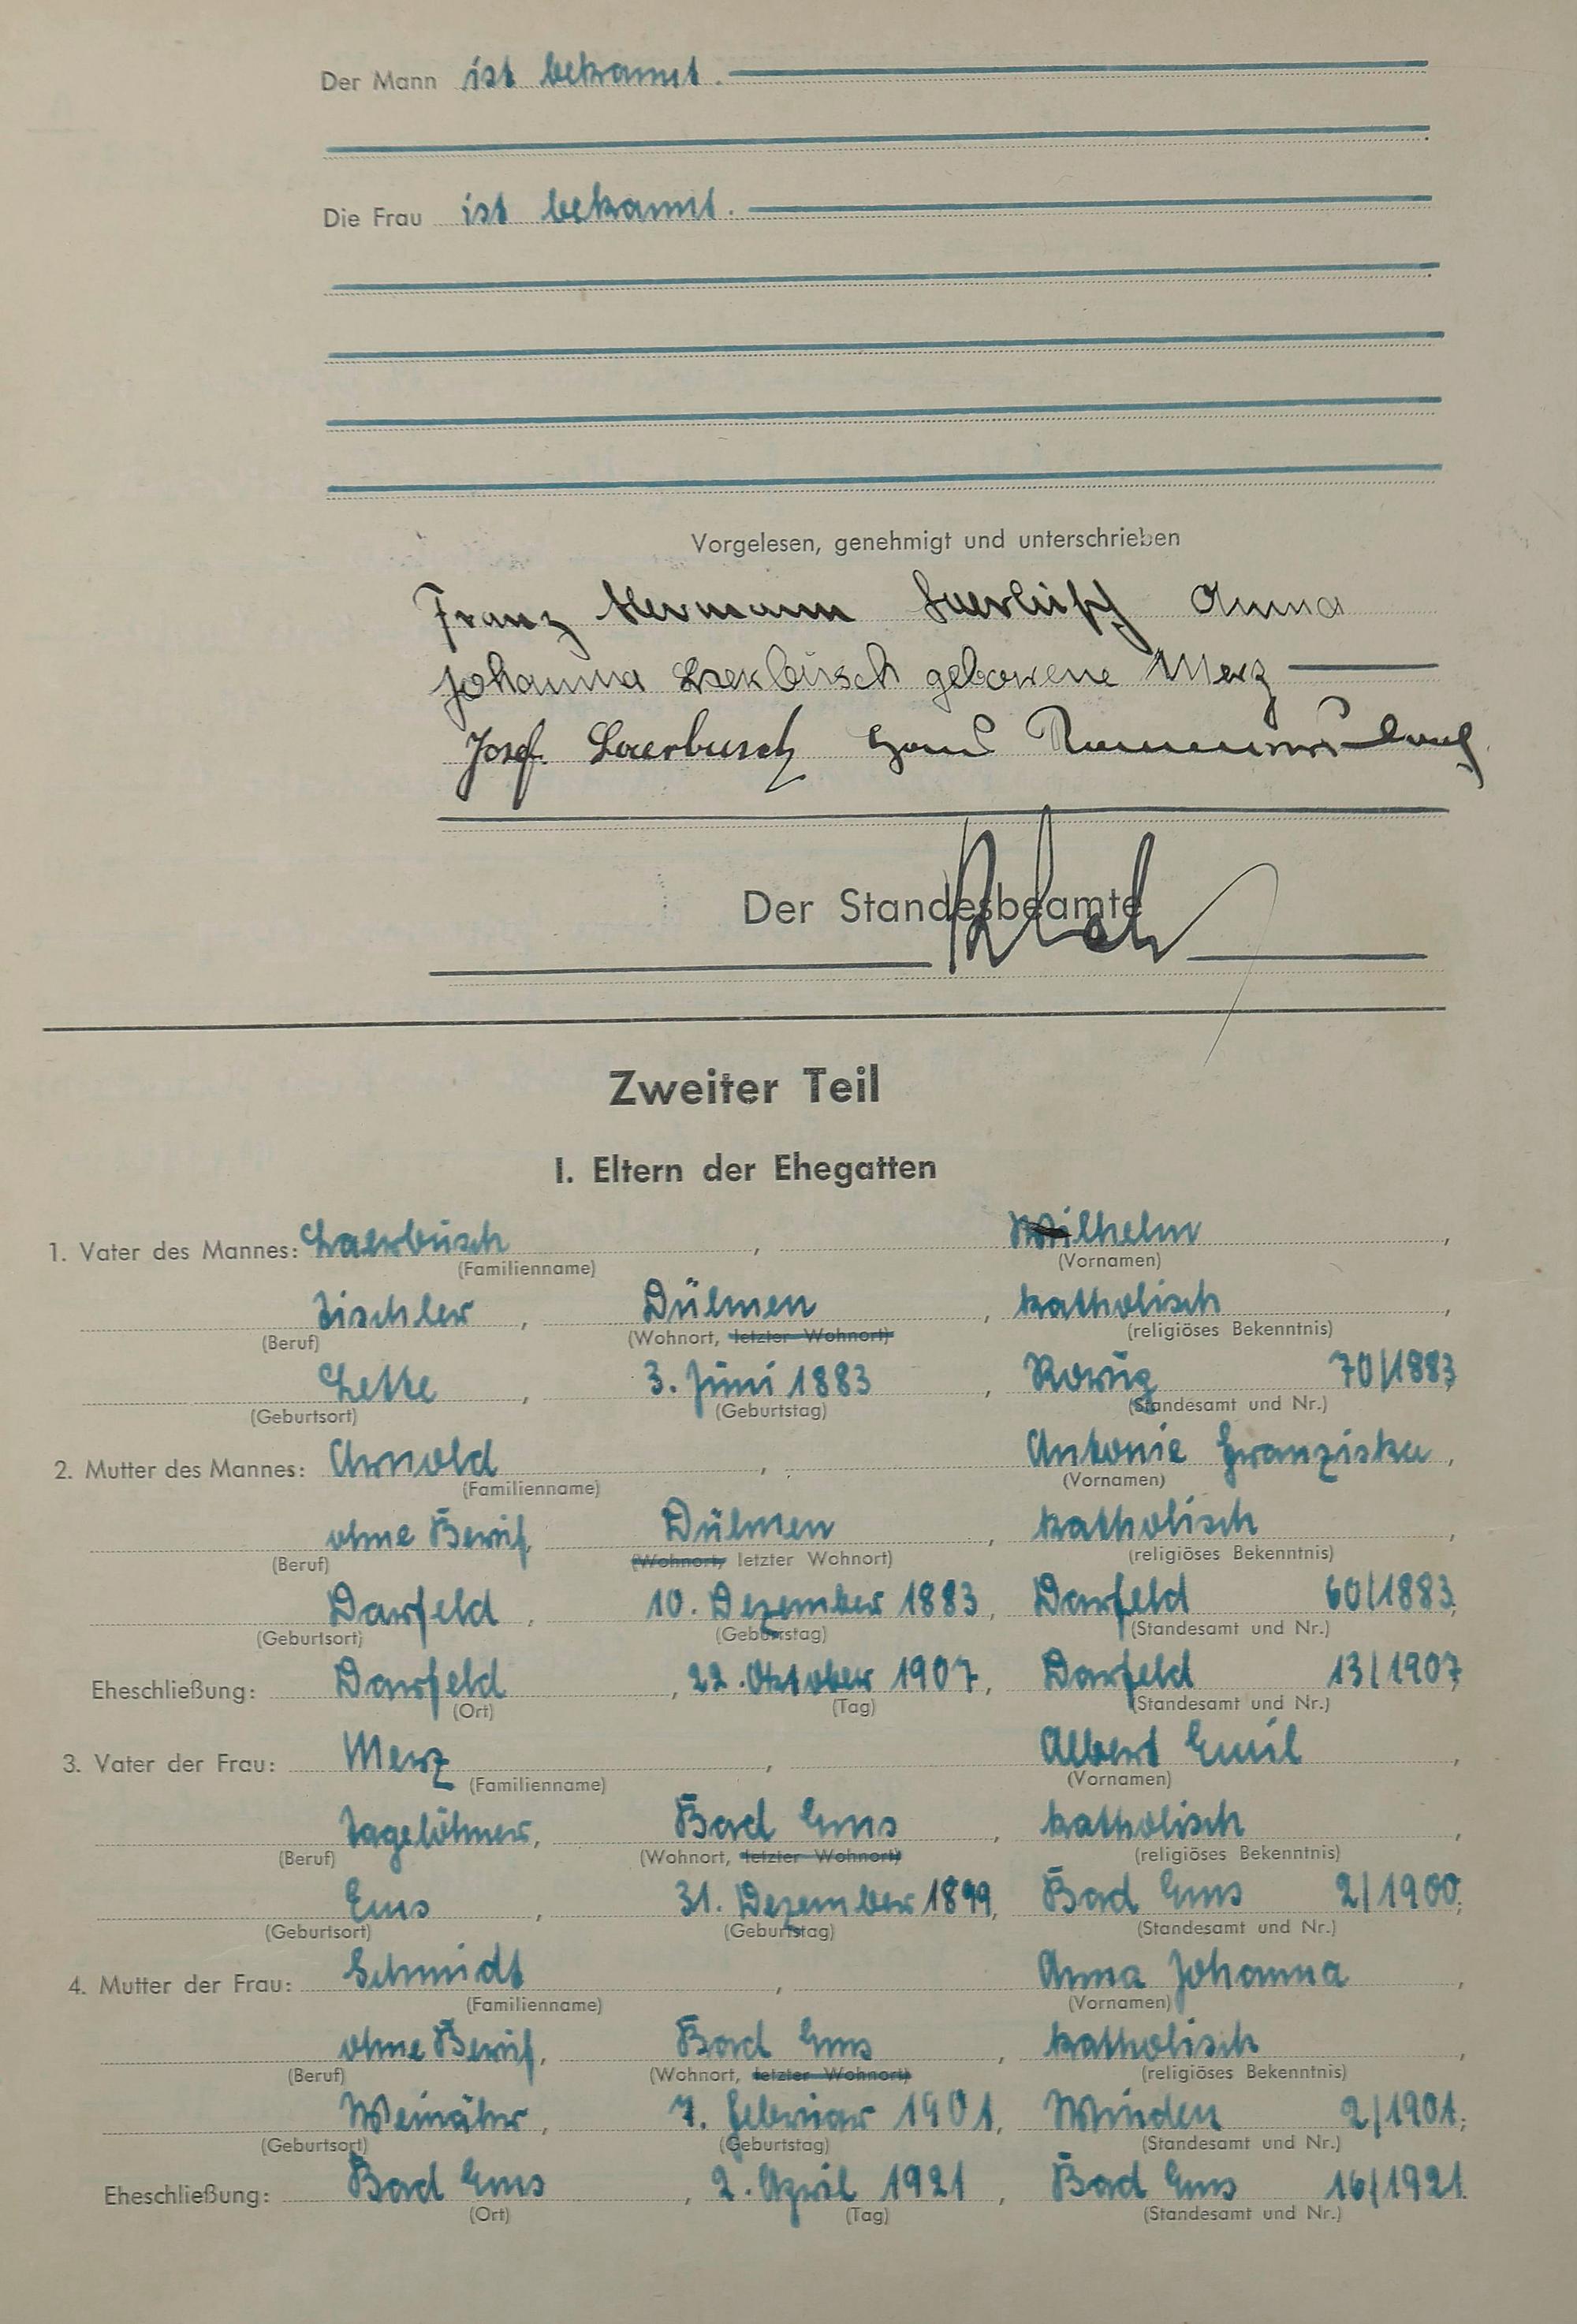 Der Mann ist bekannt.
Die Frau ist bekannt.
Vorgelesen, genehmigt und unterschrieben
Franz Hermann Laerbusch Anna
Johanna Laerbusch geborene Merz
Josef Laerbusch
Der Standesbeamte
Zweiter Teil
I. Eltern der Ehegatten
1. Vater des Mannes: Laerbusch, Wilhelm,
(Familienname) (Vornamen)
Tischler, Dülmen, katholisch,
(Beruf) (Wohnort, letzter Wohnort) (religiöses Bekenntnis)
Lette, 3. Juni 1883, Rorup 70/1883,
(Geburtsort) (Geburtstag) (Standesamt und Nr.)
2. Mutter des Mannes: Arnold, Antonie Franziska,
(Familienname) (Vornamen)
ohne Beruf, Dülmen, katholisch,
(Beruf) (Wohnort, letzter Wohnort) (religiöses Bekenntnis)
Darfeld, 10. Dezember 1883, Darfeld 60/1883;
(Geburtsort) (Geburtstag) (Standesamt und Nr.)
Eheschließung: Darfeld, 22. Oktober 1907, Darfeld 13/1907;
(Ort) (Tag) (Standesamt und Nr.)
3. Vater der Frau: Merz, Albert Emil,
(Familienname) (Vornamen)
Tagelöhner, Bad Ems, katholisch,
(Beruf) (Wohnort, letzter Wohnort) (religiöses Bekenntnis)
Ems, 31. Dezember 1899, Bad Ems 2/1900;
(Geburtsort) (Geburtstag) (Standesamt und Nr.)
4. Mutter der Frau: Schmidt, Anna Johanna,
(Familienname) (Vornamen)
ohne Beruf, Bad Ems, katholisch,
(Beruf) (Wohnort, letzter Wohnort) (religiöses Bekenntnis)
Weinähr, 7. Februar 1901, Winden 2/1901;
(Geburtsort) (Geburtstag) (Standesamt und Nr.)
Eheschließung: Bad Ems, 2. April 1921, Bad Ems 16/1921.
(Ort) (Tag) (Standesamt und Nr.)